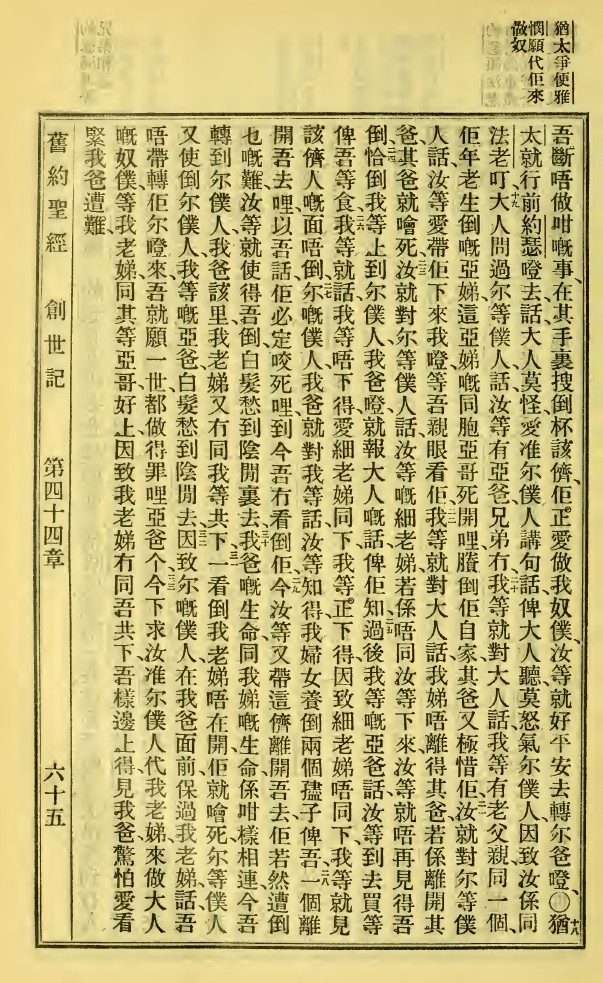 猶太爭便雅
憫願代佢來
做奴
吾斷唔做咁嘅事、在其手裏搜倒杯該儕、佢正愛做我奴僕、汝等就好平安去轉尔爸嶝、〇十八猶
太就行前約瑟嶝去話、大人、莫怪、愛准尔僕人講句話俾大人聽、莫怒氣尔僕人、因致汝係同
法老叮大人、十九問過尔等僕人話、汝等有亞爸兄弟冇、二十我等就對大人話、我等有老父親、同一個
佢年老生倒嘅亞娣、這亞娣嘅同胞亞哥死開哩、賸倒佢自家、其爸又極惜佢、二一汝就對尔等僕
人話、汝等愛帶佢下來我嶝、等吾親眼看佢、二二我等就對大人話、我娣唔離得其爸、若係離開其
爸、其爸就噲死、二三汝就對尔等僕人話、汝等嘅細老娣若係唔同汝等下來、汝等就唔再見得吾
倒、二四恰倒我等上到尔僕人我爸嶝、就報大人嘅話俾佢知、二五過後我等嘅亞爸話、汝等到去買等
俾吾等食、二六我等就話、我等唔下得、愛細老娣同下、我等正下得、因致細老娣唔同下、我等就見
該儕人嘅面唔倒、二七尔嘅僕人我爸就對我等話、汝等知得我婦女養倒兩個孻子俾吾、二八一個離
開吾去哩、以吾話佢必定咬死哩、到今吾冇看倒佢、二九今汝等又帶這儕離開吾去、佢若然遭倒
乜嘅難、汝等就使得吾倒白髮愁到陰間裏去、三十我爸嘅生命同我娣嘅生命係咁樣相連、今吾
轉到尔僕人我爸該里、我老娣又冇同我等共下、三一一看倒我老娣唔在開、佢就噲死、尔等僕人
又使倒尔僕人我等嘅亞爸、白髮愁到陰間去、三二因致尔嘅僕人在我爸面前保過我老娣話、吾
唔帶轉佢尔嶝來、吾就願一世都做得罪哩亞爸个、三三今下求汝准尔僕人代我老娣來做大人
嘅奴僕、等我老娣同其等亞哥好上、三四因致我老娣冇同吾共下、吾樣邊上得見我爸、驚怕愛看
緊我爸遭難、
舊約聖經 創世記 第四十四章 六十五